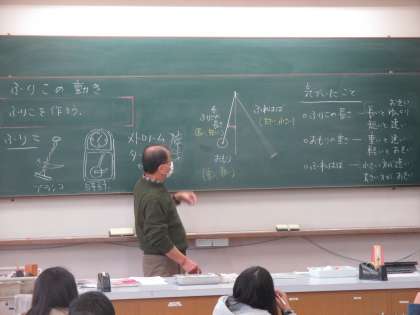 ふりこの動き
ふりこを作ろう。
ふりこ
ブランコ
メトロノーム
ふりこの
長さ
おもり
ふれはば
気づいたこと
○ふりこの長さ
長いとゆっくり
短いと速い
○おもりの重さ
重いと速い
軽いとおそい
○ふれはば
小さいと速い
大きいとおそい